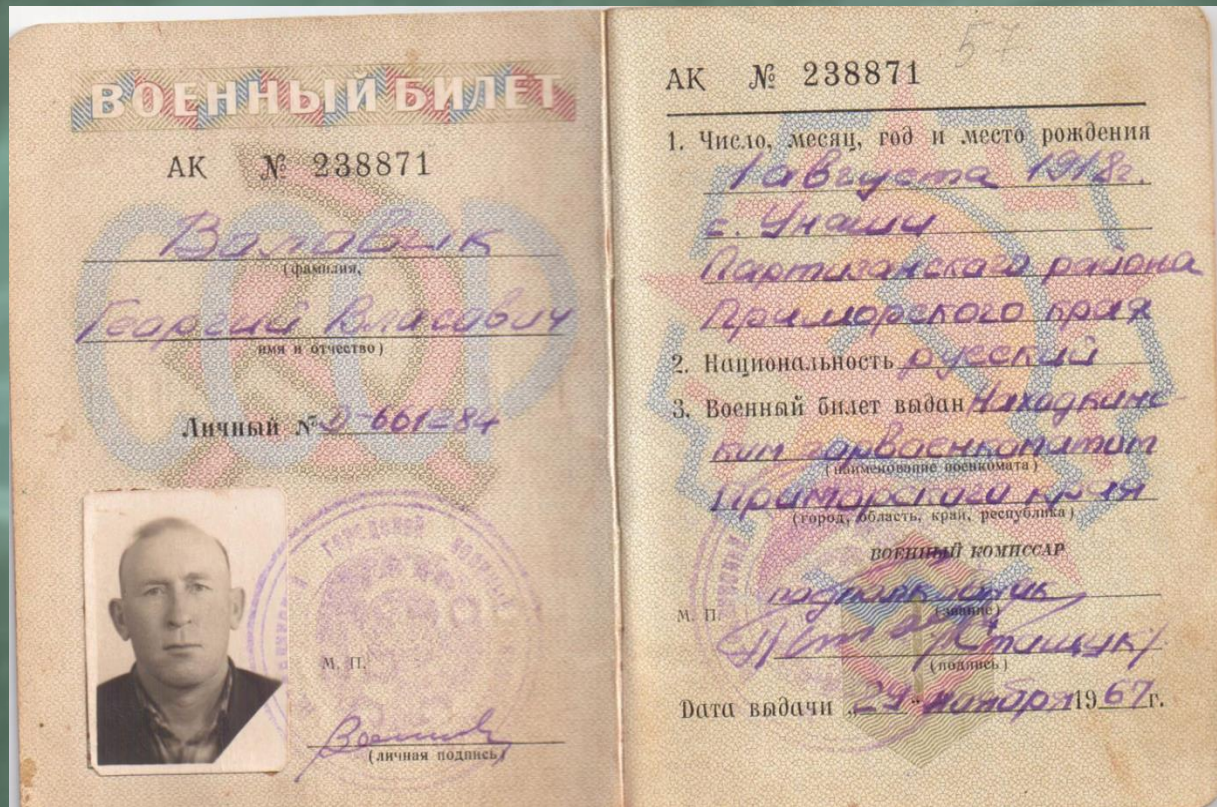 ВОЕННЫЙ БИЛЕТ
АК № 238871
Воловик
(фамилия,
Георгий Власович
имя и отчество)
Личный №
М. П.
(личная подпись)
57
АК № 238871
1. Число, месяц, год и место рождения
1 августа 1918г.
с. Унаши
Партизанского района
Приморского края
2. Национальность русский
3. Военный билет выдан Находкинс-
ким горвоенкоматом
(наименование военкомата)
Приморского края
(город, область, край, республика)
ВОЕННЫЙ КОМИССАР
подполковник
(звание)
М. П.
(подпись)
Дата выдачи „ " ноября 1967г.